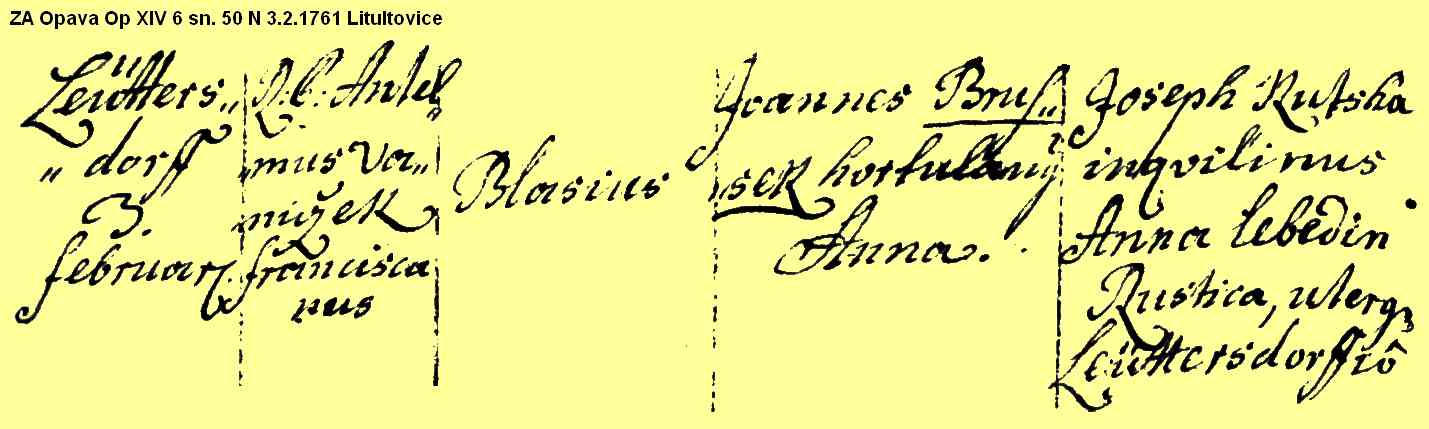 ZA Opava Op XIV 6 sn. 50 N 3.2.1761 Litultovice
Leütters„
„dorff
3.
februar.
P: Antel„
„mus Va„
nižek
francisca
nus
Blasius
Joannes Brus„
„sek hortulanus
Anna.
Joseph Rutska
inqvilinus
Anna lebedin
Rustica, uterq
Leüttersdorffiô